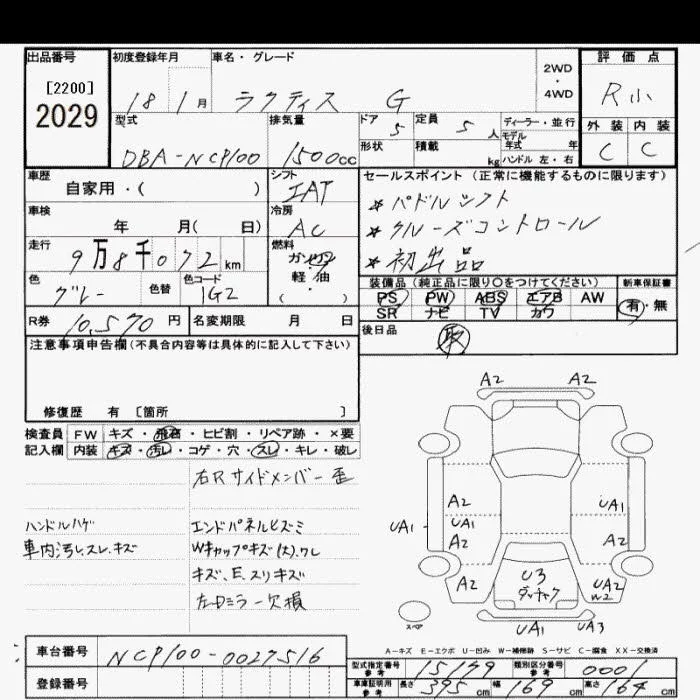 出品番号 初度登録年月 車名・グレード 2WD・4WD 評価点
[2200]
2029
18 1月 ラクティス G R小
型式 排気量 ドア 定員 ディーラー・並行 外装 内装
5 5人 モデル年式 年
DBA-NCP100 1500cc 形状 積載 kg ハンドル 左・右 C C
車歴 シフト セールスポイント (正常に機能するものに限ります)
自家用・( ) IAT
★パドルシフト
車検 冷房
年 月( 日) AC ★クルーズコントロール
走行 燃料
9万8千072km ガソリン ★初出品
軽・油
( )
色 色替 色コード 装備品 (純正品に限り○をつけてください) 新車保証書
グレー 1G2 PS PW ABS エアB AW 有・無
SR ナビ TV カワ
R券 10,570円 名変期限 月 日
後日品 取
注意事項申告欄 (不具合内容等は具体的に記入して下さい)
修復歴 有 [箇所 ]
A2 A2
検査員 FW キズ・飛石・ヒビ割・リペア跡・×要
記入欄 内装 キズ・汚レ・コゲ・穴・スレ・キレ・破レ
右Rサイドメンバー歪
A2 UA1
ハンドルハゲ エンドパネルヒズミ UA1 UA1
車内汚レ、スレ、キズ Wキャップキズ(大).ワレ A2 A2
キズ、E、スリキズ
A2 U3 UA2
W2
左Dミラー欠損
スペア
UA1 UA3
A-キズ E-エクボ U-凹み W-補修跡 S-サビ C-腐食 XX-交換済
車台番号 NCP100-0027516
型式指定番号 参考 15199 類別区分番号 参考 0001
登録番号 車庫証明用 参考 長さ 395cm 幅 169cm 高さ 164cm